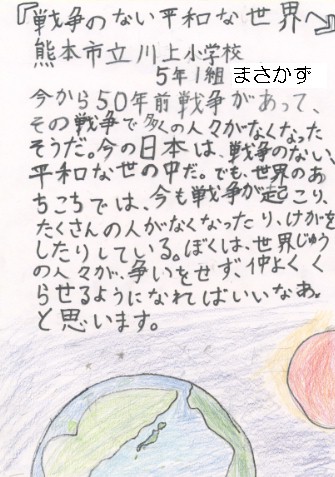 『戦争のない平和な世界へ』
熊本市立川上小学校
5年1組 まさかず
今から50年前戦争があって、
その戦争で多くの人々がなくなった
そうだ。今の日本は、戦争のない、
平和な世の中だ。でも、世界のあ
ちこちでは、今も戦争が起こり、
たくさんの人がなくなったり、けがを
したりしている。ぼくは、世界じゅう
の人々が、争いをせず、仲よくく
らせるようになればいいなあ。
と思います。